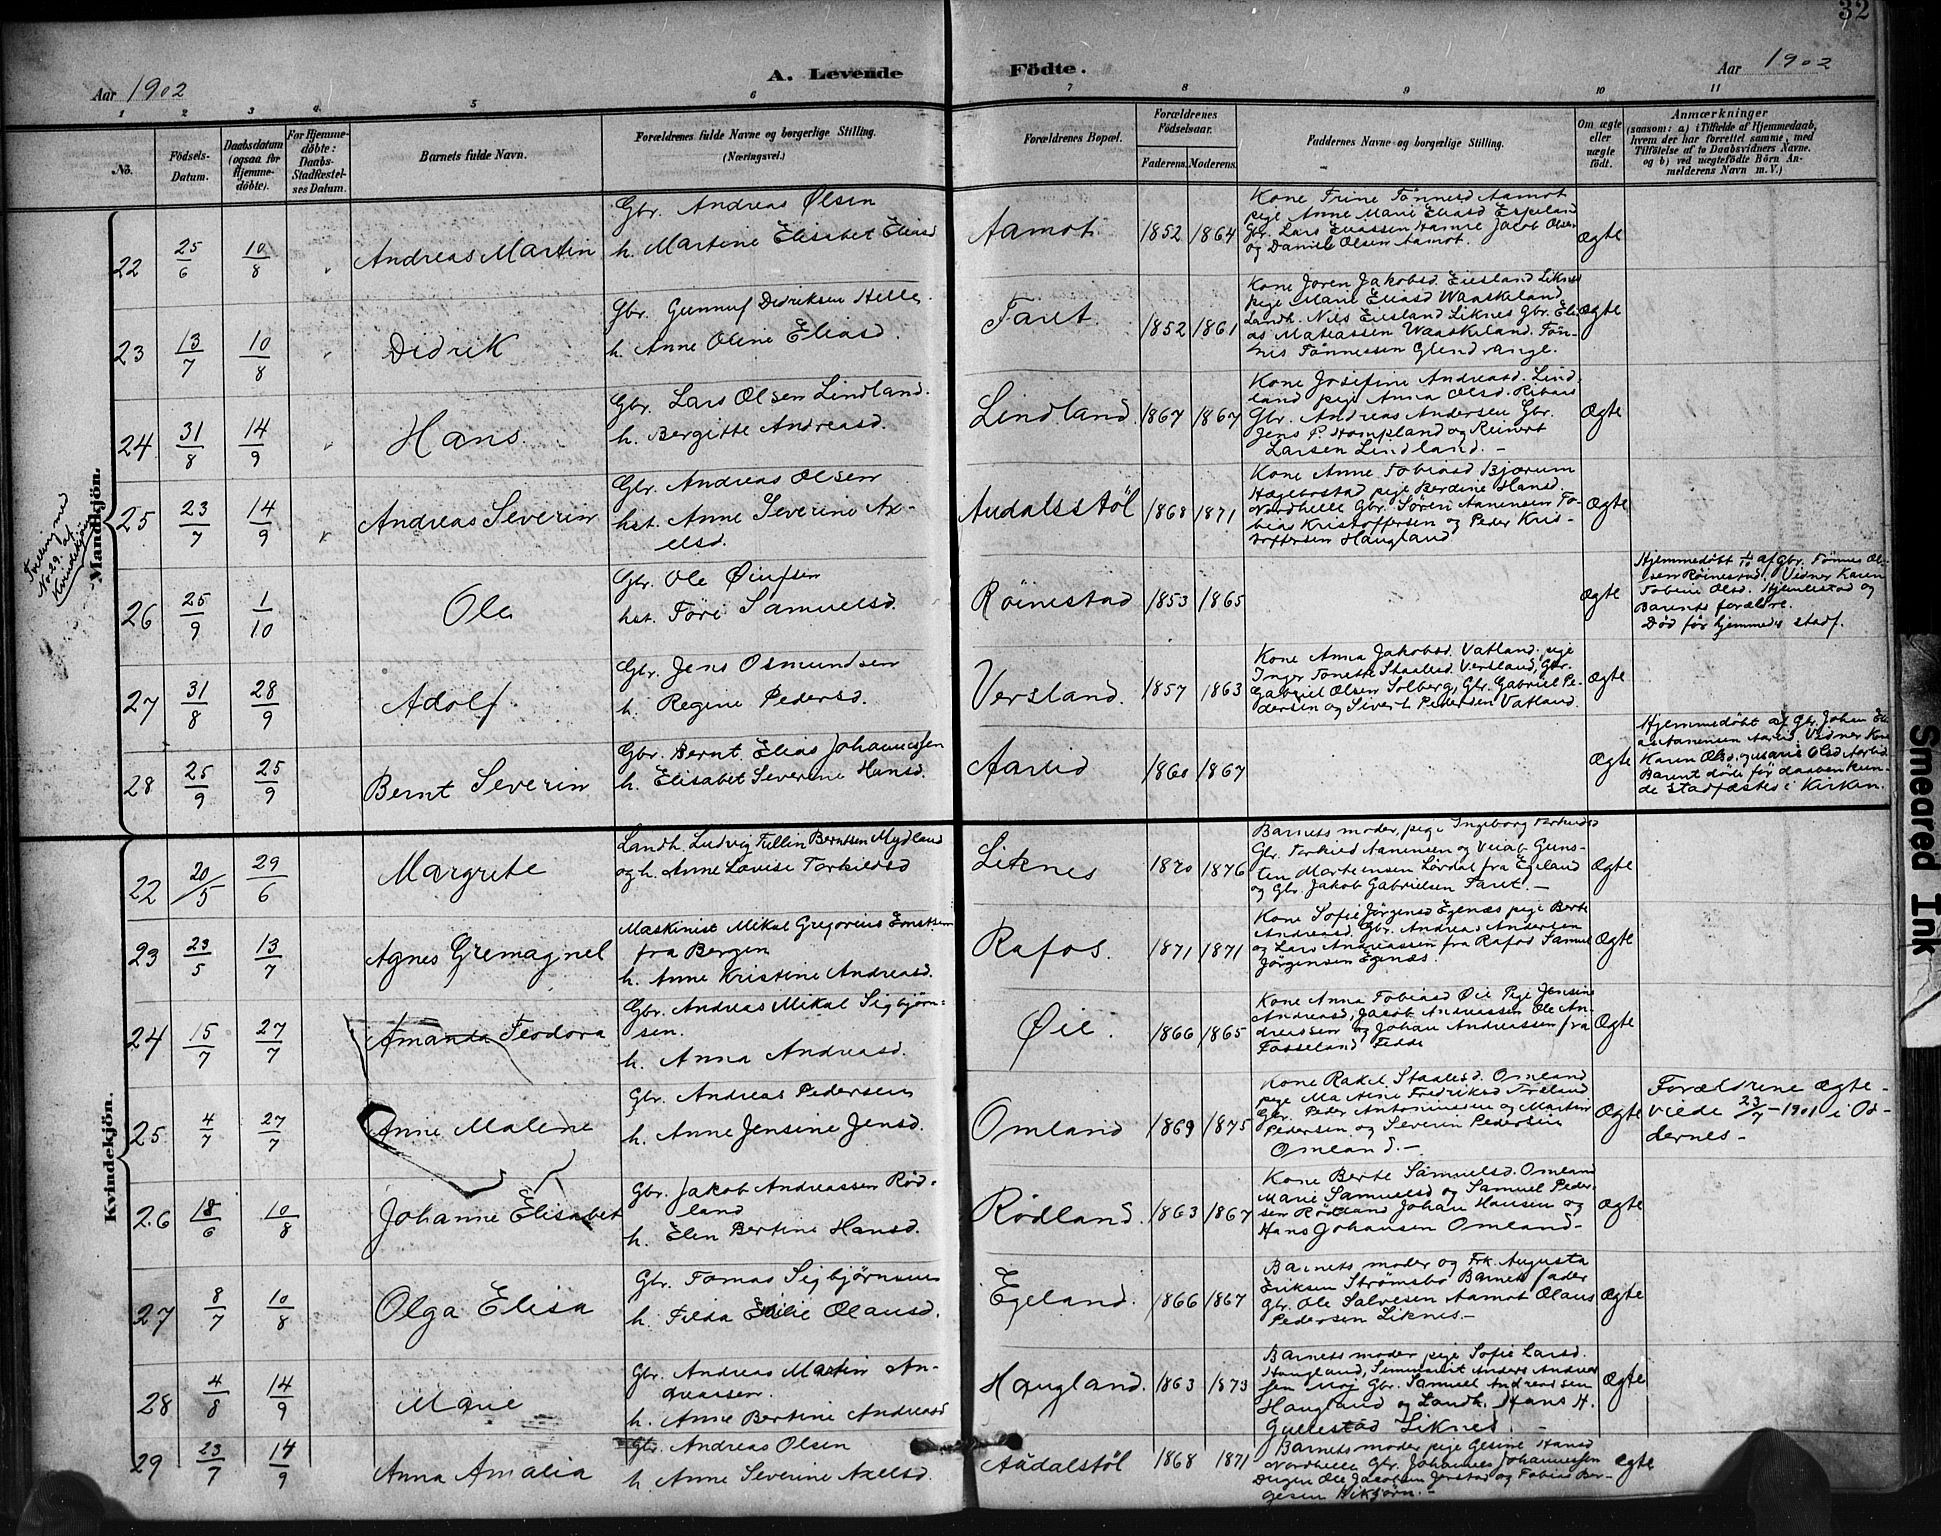 32
Aar 1902
A. Levende Födte.
Aar 1902
1 2 3 4 5 6 7 8 9 10 11
No.
Födsels-Datum.
Daabsdatum (ogsaa for Hjemme-döbte).
For Hjemme-döbte: Daabs-Stadfæstel-ses Datum.
Barnets fulde Navn.
Forældrenes fulde Navne og borgerlige Stilling.
(Næringsvei.)
Forældrenes Bopæl.
Forældrenes Födselsaar.
Faderens. Moderens.
Faddernes Navne og borgerlige Stilling.
Om ægte eller uægte födt.
Anmærkninger
(saasom: a) i Tilfælde af Hjemmedaab,
hvem der har forrettet samme, med
Tilföielse af to Daabsvidners Navne.
og b) ved uægtefödte Börn An-
melderens Navn m. V.)
Mandkjön.
Tvilling med
No. 29. af
Kvindekjön
22 25/6 10/8 Andreas Martin
Gbr. Andreas Olsen
h. Martine Elisabet Eliasd
Aamot. 1852 1864
Kone Trine Tönnesd Aamot
pige Anne Marie Eliasd Espeland
Gbr. Lars Eliassen Hamre Jacob Olsen
og Daniel Olsen Aamot.
Ægte
23 13/7 10/8 Didrik
Gbr. Gunnuf Didriksen Helle.
h. Anne Oline Eliasd.
Faret. 1852 1861
Kone Joren Jakobsd. Eiesland Liknes
pige Marie Eliasd Waaskeland
Landh. Nils Eiesland Liknes Gbr. Eli-
as Matiassen Waaskeland. Tön-
nes Tönnessen Glendrange.
Ægte
24 31/8 14/9 Hans.
Gbr. Lars Olsen Lindland.
h. Bergitte Andreasd.
Lindland. 1867 1867
Kone Josefine Andreasd. Lind
land pige Anna Olsd.
Gbr. Andreas Andersen Gbr.
Jens P. og Reinert
Larsen Lindland. -
Ægte
25 23/7 14/9 Andreas Severin
Gbr. Andreas Olsen
hst. Anne Severine Ax-
elsd.
Audalsstöl 1868 1871
Kone Anne Tobiasd Bjærum
Hægebostad pige Berdine Hansd.
Nordhelle Gbr. Sören Aanensen To
bias Kristoffersen og Peder Kris-
toffersen Haugland
Ægte
26 25/9 1/10 Ole
Gbr. Ole
hst. Töre Samuelsd.
Röinestad 1853 1865
Ægte
Hjemmedöbt 1/10 af Gbr. Tönnes Ol-
sen Röinestad. Vidner Karen
Tobine Olsd. og
Barnets forældre.
Död för hjemmed. stadf.
27 31/8 28/9 Adolf
Gbr. Jens Osmundsen
h. Regine Pedersd.
Versland. 1857 1863
Kone Anna Jakobsd. Vatland. pige
Inger Tonette Staalesd. Versland, Gbr.
Gabriel Olsen Solberg, Gbr. Gabriel Pe-
dersen og Sivert Pedersen Vatland.
Ægte
28 25/9 25/9 Bernt Severin
Gbr. Bernt Elias Johannessen
h. Elisabet Severine Hansd.
Aarlid 1860 1867
Ægte
Hjemmedöbt af Gbr. Johan Eli
as Aanensen Aarlid. Vidner Kone
Karen Olsd. og Marie Olsd Aarlid.
Barnet döde för daaben kun-
de stadfæstes i Kirken.
Kvindekjön.
22 20/5 29/6 Margrete
Landh. Ludvig Tellin Berntsen Mydland
og h. Anne Lovise Torkildsd
Liknes 1870 1876
Barnets moder, pige Ingeborg Torkildsd
Gbr. Torkild Aanensen og Guns-
ten Martensen Lördal fra Egeland
og Gbr. Jakob Gabrielsen Faret. -
Ægte
23 23/5 13/7 Agnes Gremagnel
Maskinist Mikal Gregorius Enoksen
fra Bergen
h. Anne Kristine Andreasd.
Rafos. 1871 1871
Kone Sofie Jörgensd Egenæs pige Berte
Andreasd. Gbr. Andreas Andersen
og Lars Andreassen fra Rafos Samuel
Jörgensen Egenæs.
Ægte
24 15/7 27/7 Amanda Teodora
Gbr. Andreas Mikal Sigbjörn-
sen.
h. Anna Andreasd.
Öie. 1866 1865
Kone Anna Tobiasd Öie Pige Jensine
Andreasd, Jacob Andreassen Ole An-
dreassen og Johan Andreassen fra
Fosseland Fedde
Ægte
25 4/7 27/7 Anne Malene
Gbr. Andreas Pedersen
h. Anne Jensine Jensd.
Omland 1869 1875
Kone Rakel Staalesd. Omland
pige Fredriksd
Gbr. Peder Antoniussen og Martin
Pedersen og Severin Pedersen
Omland. -
Ægte
Forældrene Ægte-
viede 23/7 - 1901 i Od-
dernes -
26 18/6 10/8 Johanne Elisabet
Gbr. Jakob Andreassen Röd-
land
h. Elen Bertine Hansd.
Rödland. 1863 1867
Kone Berte Samuelsd. Omland
Marie Samuelsd og Samuel Peder-
sen Rödland Johan Hansen og
Hans Johansen Omland -
Ægte
27 8/7 10/8 Olga Elisa
Gbr. Tomas Sigbjörnsen
h. Tilda Emilie Olausd.
Egeland. 1866 1867
Barnets moder og Frk. Augusta
Eriksen Strömsbo Barnets fader
Gbr. Ole Salvesen Aamot Olaus
Pedersen Liknes. -
Ægte
28 4/8 14/9 Marie
Gbr. Andreas Martin An-
dreassen.
h. Anne Bertine Andreasd
Haugland. 1863 1873
Barnets moder pige Sofie Larsd.
Haugland, Anders Andreas
sen Moj Gbr. Samuel Andreassen
Haugland og Landh. Hans H.
Gullestad Liknes. -
Ægte
29 23/7 14/9 Anna Amalia
Gbr. Andreas Olsen
h. Anne Severine Axelsd.
Audalstöl 1868 1871
Barnets moder pige Gesine Hansd
Nordhelle Gbr. Johannes Johannessen
Ole Jacobsen og Tobias Ber-
gesen
Ægte
Smeared Ink